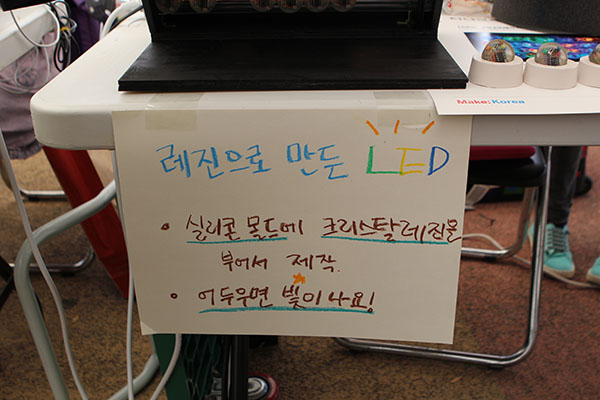 Make: Korea
레진으로 만든 LED
• 실리콘 몰드에 크리스탈레진을
부어서 제작.
• 어두우면 빛이나요!